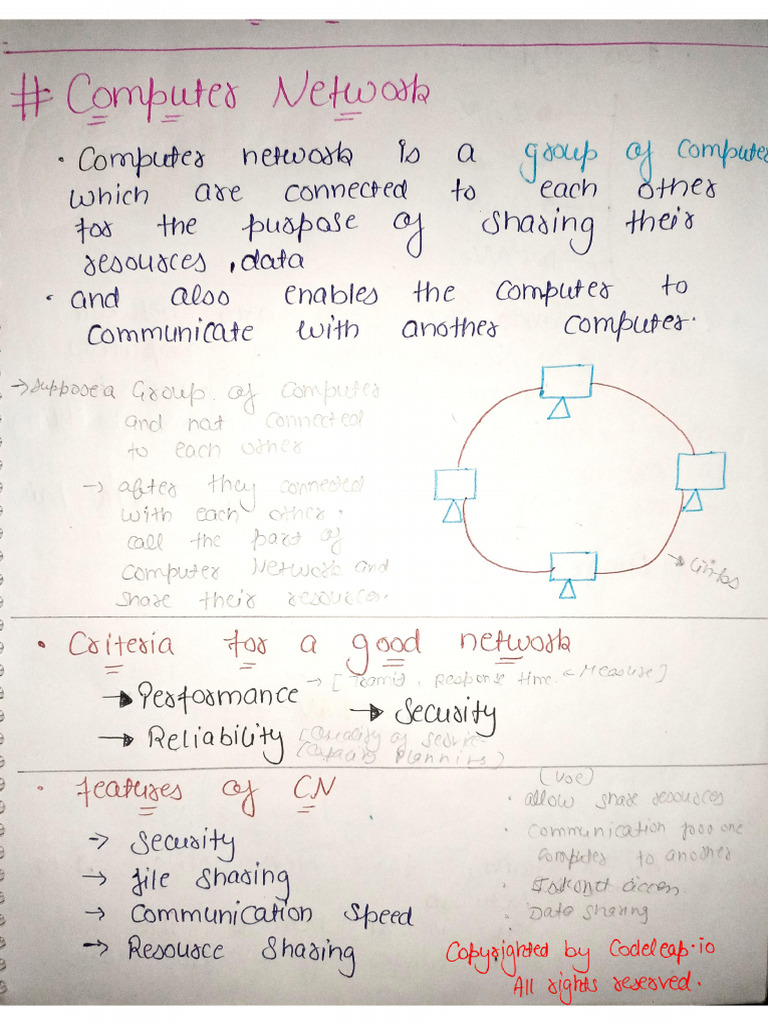 # Computer Network
• Computer network is a group of compute
which are connected to each other
for the purpose of sharing their
resources, data
• and also enables the computer to
communicate with another computer.
→ suppose a Group of computer
and not connected
to each other
→ after they connected
with each other.
call the part of
computer Network and
share their resources.
→ Links
• Criteria for a good network
→ Performance → [ Transit, Response time. < Measure]
→ Security
→ Reliability [Quality of Servic
(Capacity Planning)
• features of CN
→ Security
→ file sharing
→ Communication speed
→ Resource sharing
(Use)
• allow share resources
• Communication one
computer to another
• access
• Data sharing
Copyrighted by Codeleap.io
All rights reserved.